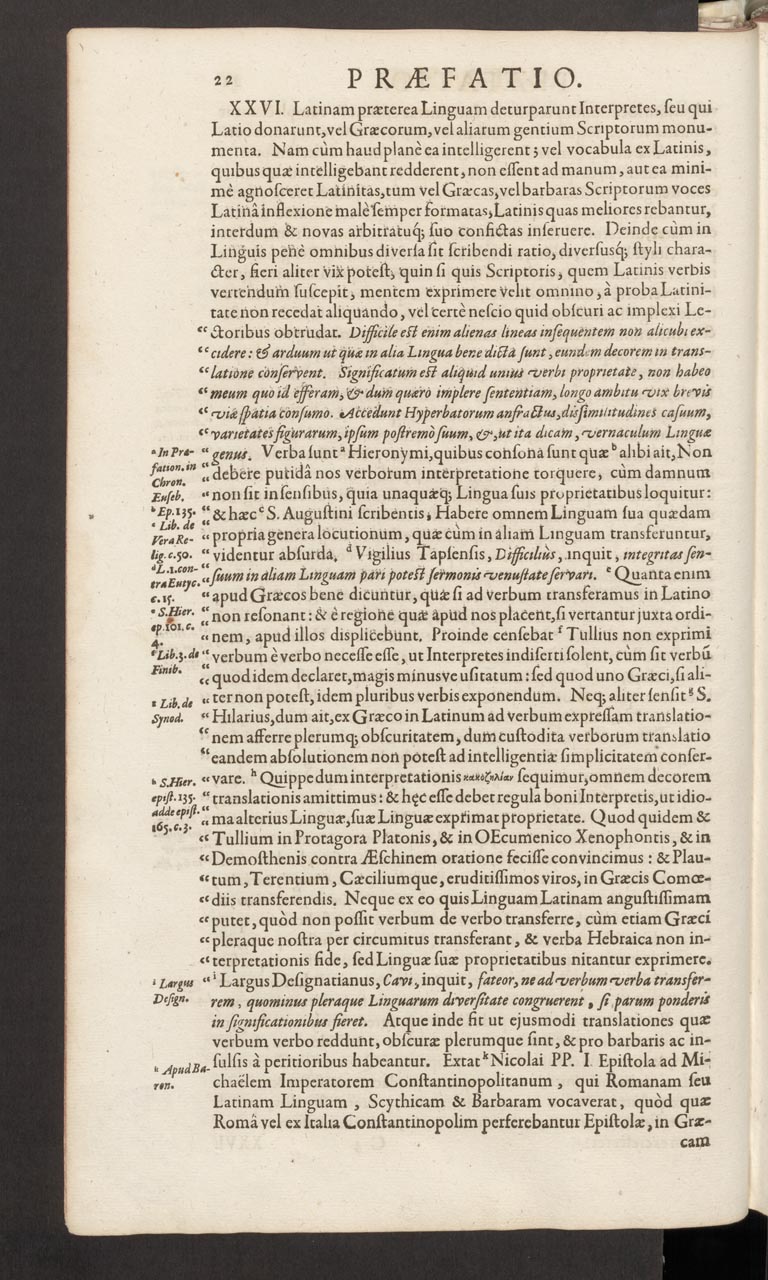 22 PRÆFATIO.
XXVI. Latinam præterea Linguam deturparunt Interpretes, ſeu qui
Latio donarunt, vel Græcorum, vel aliarum gentium Scriptorum monu-
menta. Nam cùm haud planè ea intelligerent; vel vocabula ex Latinis,
quibus quæ intelligebant redderent, non eſſent ad manum, aut ea mini-
mè agnoſceret Latinitas, tum vel Græcas, vel barbaras Scriptorum voces
Latinâ inflexione malè ſemper formatas, Latinis quas meliores rebantur,
interdum & novas arbitratuq; ſuo confictas inſeruere. Deinde cùm in
Linguis penè omnibus diverſa ſit ſcribendi ratio, diverſuſq; ſtyli chara-
cter, fieri aliter vix poteſt, quin ſi quis Scriptoris, quem Latinis verbis
vertendum ſuſcepit, mentem exprimere velit omnino, à proba Latini-
tate non recedat aliquando, vel certè neſcio quid obſcuri ac implexi Le-
“ ctoribus obtrudat. Difficile eſt enim alienas lineas inſequentem non alicubi ex-
“ cidere: & arduum ut quæ in alia Lingua bene dicta ſunt, eundem decorem in trans-
“ latione conſervent. Significatum eſt aliquid unius verbi proprietate, non habeo
“ meum quo id efferam, & dum quæro implere ſententiam, longo ambitu vix brevis
“ viæ ſpatia conſumo. Accedunt Hyperbatorum anfractus, diſſimilitudines caſuum,
“ varietates figurarum, ipſum poſtremò ſuum, &, ut ita dicam, vernaculum Linguæ
a In Præ-
fation. in
Chron.
Euſeb.
“ genus. Verba ſunt a Hieronymi, quibus conſona ſunt quæ b alibi ait, Non
“ debere putidâ nos verborum interpretatione torquere, cùm damnum
“ non ſit in ſenſibus, quia unaquæq; Lingua ſuis proprietatibus loquitur:
b Ep. 135.
c Lib. de
Vera Re-
lig. c. 50.
“ & hæc c S. Auguſtini ſcribentis, Habere omnem Linguam ſua quædam
“ propria genera locutionum, quæ cùm in aliam Linguam transferuntur,
“ videntur abſurda. d Vigilius Tapſenſis, Difficiliùs, inquit, integritas ſen-
d L. 1. con-
tra Eutyc.
c. 15.
“ ſuum in aliam Linguam pari poteſt ſermonis venuſtate ſervari. e Quanta enim
“ apud Græcos bene dicuntur, quæ ſi ad verbum transferamus in Latino
e S. Hier.
ep. 101. c.
4.
“ non reſonant: & è regione quæ apud nos placent, ſi vertantur juxta ordi-
“ nem, apud illos diſplicebunt. Proinde cenſebat f Tullius non exprimi
f Lib. 3. de
Finib.
“ verbum è verbo neceſſe eſſe, ut Interpretes indiſerti ſolent, cùm ſit verbũ
“ quod idem declaret, magis minuſve uſitatum: ſed quod uno Græci, ſi ali-
g Lib. de
Synod.
“ ter non poteſt, idem pluribus verbis exponendum. Neq; aliter ſenſit g S.
“ Hilarius, dum ait, ex Græco in Latinum ad verbum expreſſam translatio-
“ nem afferre plerumq; obſcuritatem, dum cuſtodita verborum translatio
“ eandem abſolutionem non poteſt ad intelligentiæ ſimplicitatem conſer-
h S. Hier.
epiſt. 135.
adde epiſt.
165. c. 3.
“ vare. h Quippe dum interpretationis κακοζηλίαν ſequimur, omnem decorem
“ translationis amittimus: & hęc eſſe debet regula boni Interpretis, ut idio-
“ ma alterius Linguæ, ſuæ Linguæ exprimat proprietate. Quod quidem &
“ Tullium in Protagora Platonis, & in OEcumenico Xenophontis, & in
“ Demoſthenis contra Æſchinem oratione feciſſe convincimus: & Plau-
“ tum, Terentium, Cæciliumque, eruditiſſimos viros, in Græcis Comœ-
“ diis transferendis. Neque ex eo quis Linguam Latinam anguſtiſſimam
“ putet, quòd non poſſit verbum de verbo transferre, cùm etiam Græci
“ pleraque noſtra per circumitus transferant, & verba Hebraica non in-
“ terpretationis fide, ſed Linguæ ſuæ proprietatibus nitantur exprimere.
i Largus
Deſign.
“ i Largus Deſignatianus, Cavi, inquit, fateor, ne ad verbum verba transfer-
rem, quominus pleraque Linguarum diverſitate congruerent, ſi parum ponderis
in ſignificationibus fieret. Atque inde fit ut ejuſmodi translationes quæ
verbum verbo reddunt, obſcuræ plerumque ſint, & pro barbaris ac in-
k Apud Ba-
ron.
ſulſis à peritioribus habeantur. Extat k Nicolai PP. I. Epiſtola ad Mi-
chaëlem Imperatorem Conſtantinopolitanum, qui Romanam ſeu
Latinam Linguam, Scythicam & Barbaram vocaverat, quòd quæ
Româ vel ex Italia Conſtantinopolim perferebantur Epiſtolæ, in Græ-
cam